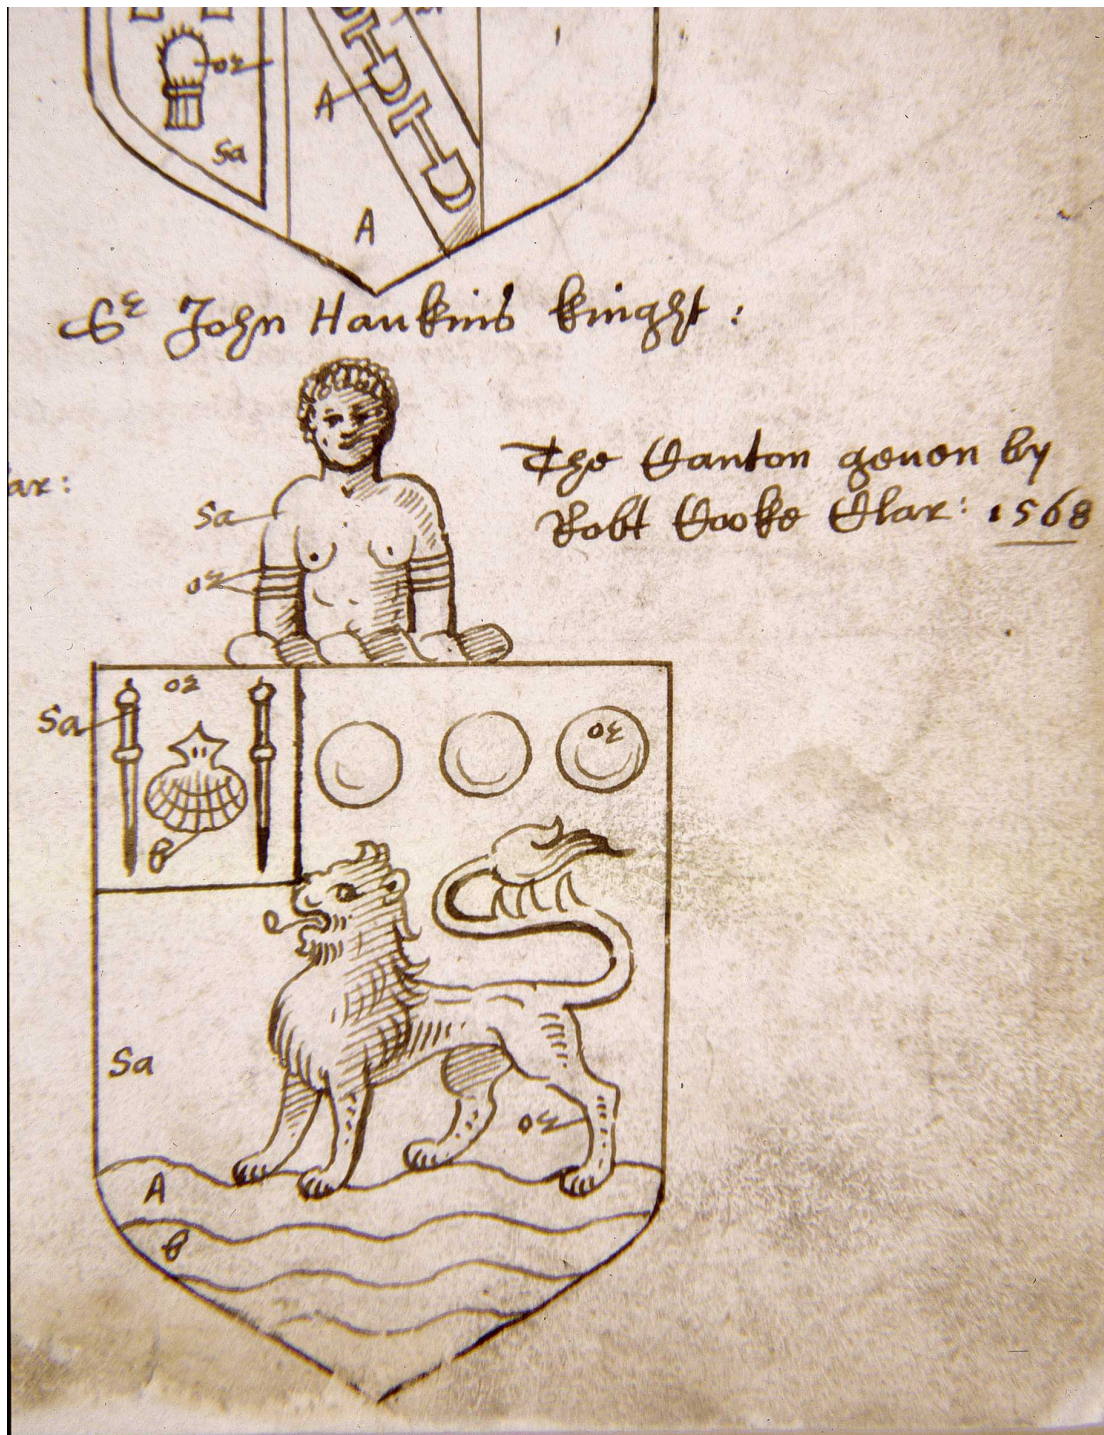 or
A
Sa
A
Sr John Haukins knight :
ar:
The Canton geuen by
Robt Cooke Clar: 1568
Sa
or
or
Sa
or
B
Sa
or
A
B